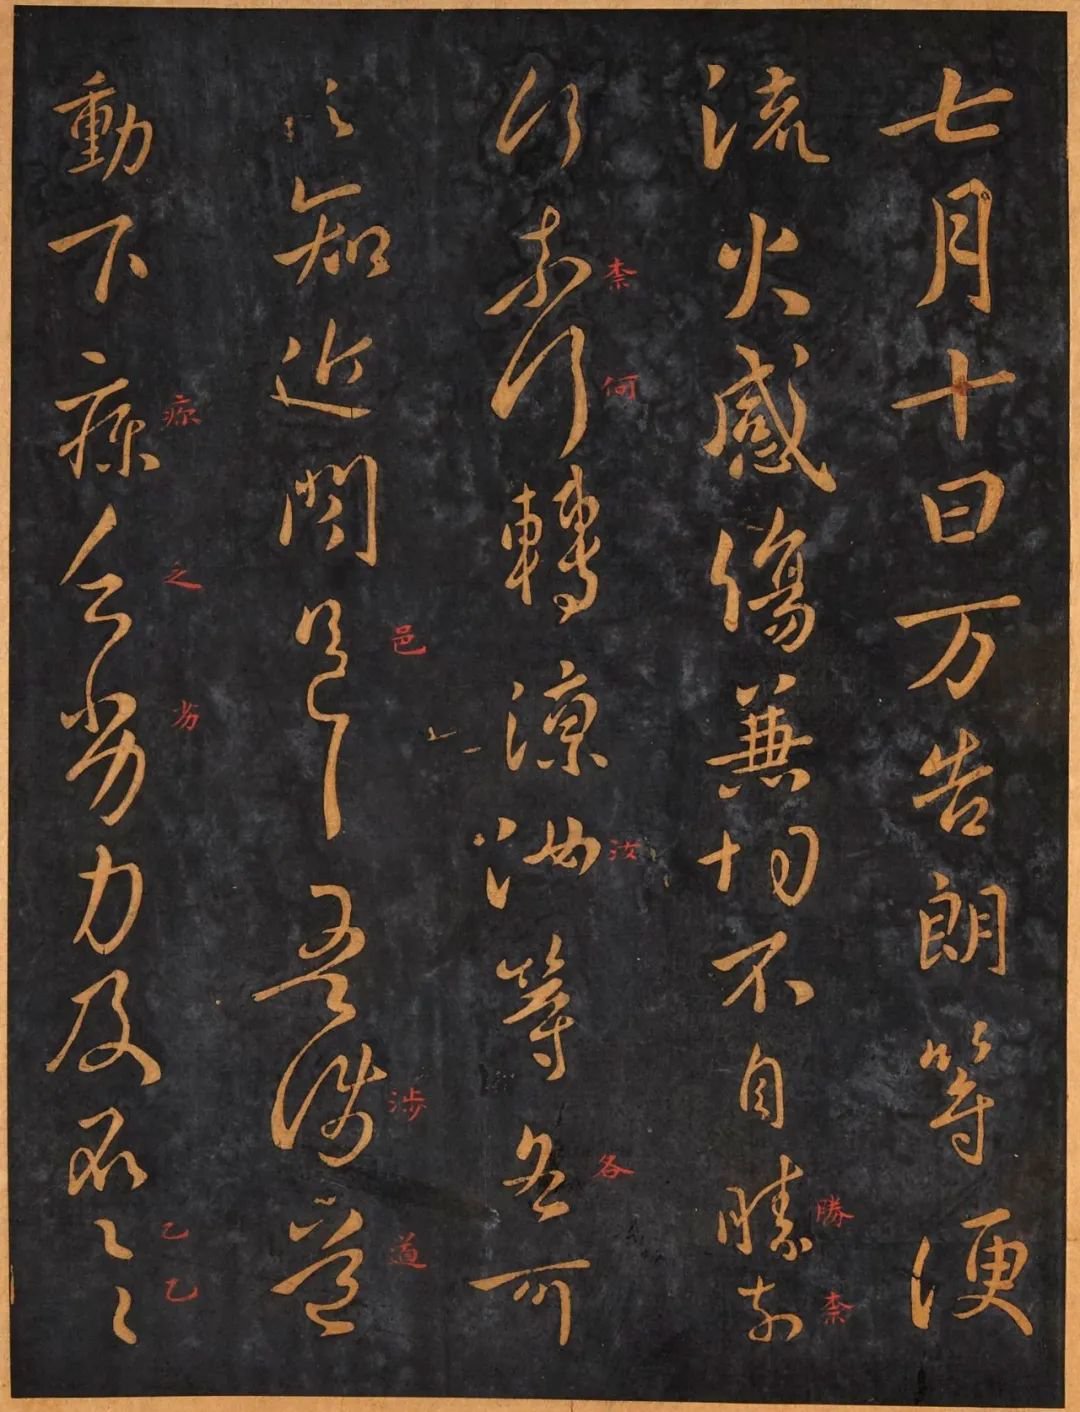 七月十日万告朗等便
流火感傷兼切不自勝柰
何柰何轉涼汝等各可
不知近問邑邑吾涉道
動下疢乏劣力及不乙乙
柰
何
汝
各
勝
柰
邑
涉
道
疢
乏
劣
乙
乙